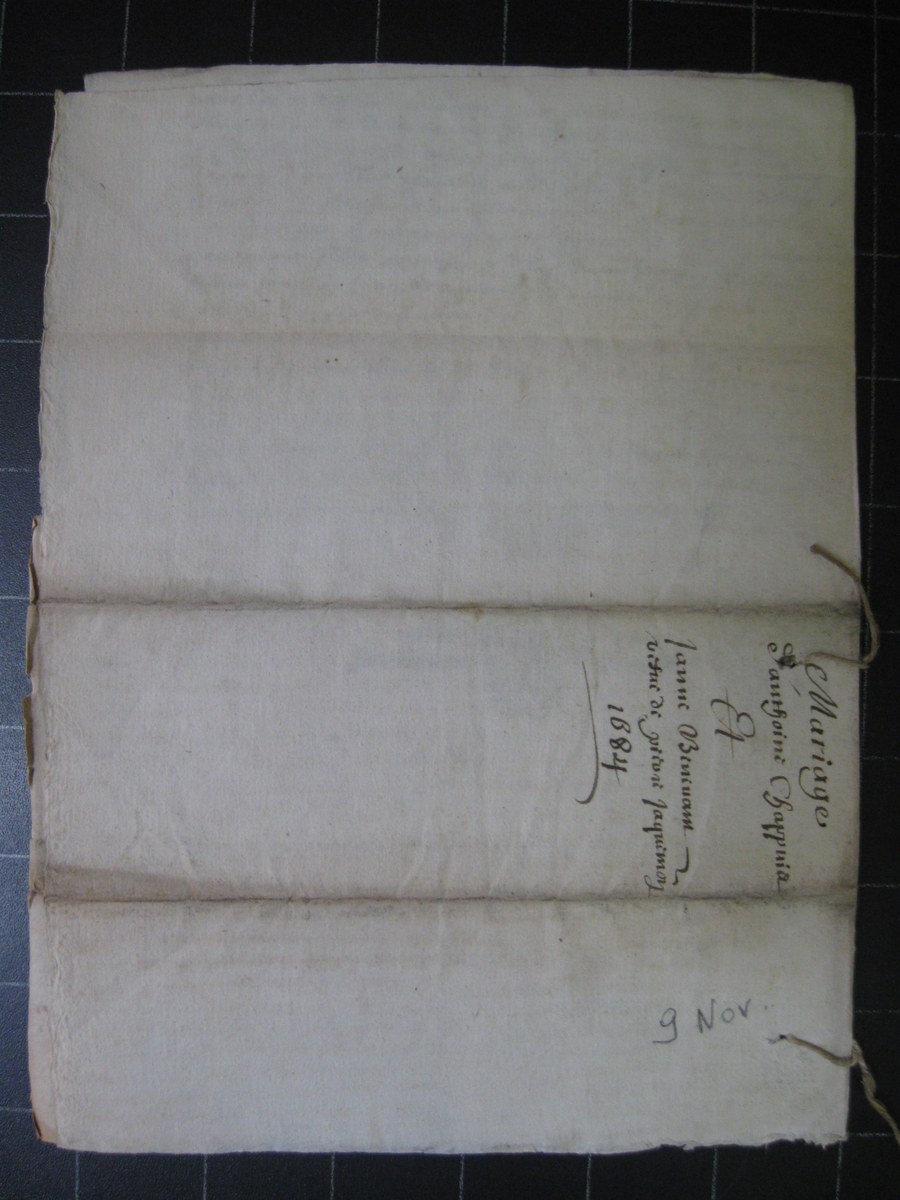 Mariage
D'anthoine Chappuis
Et
Janne Benenam
vefue de pierre Jaquimoz
1684
9 Nov.